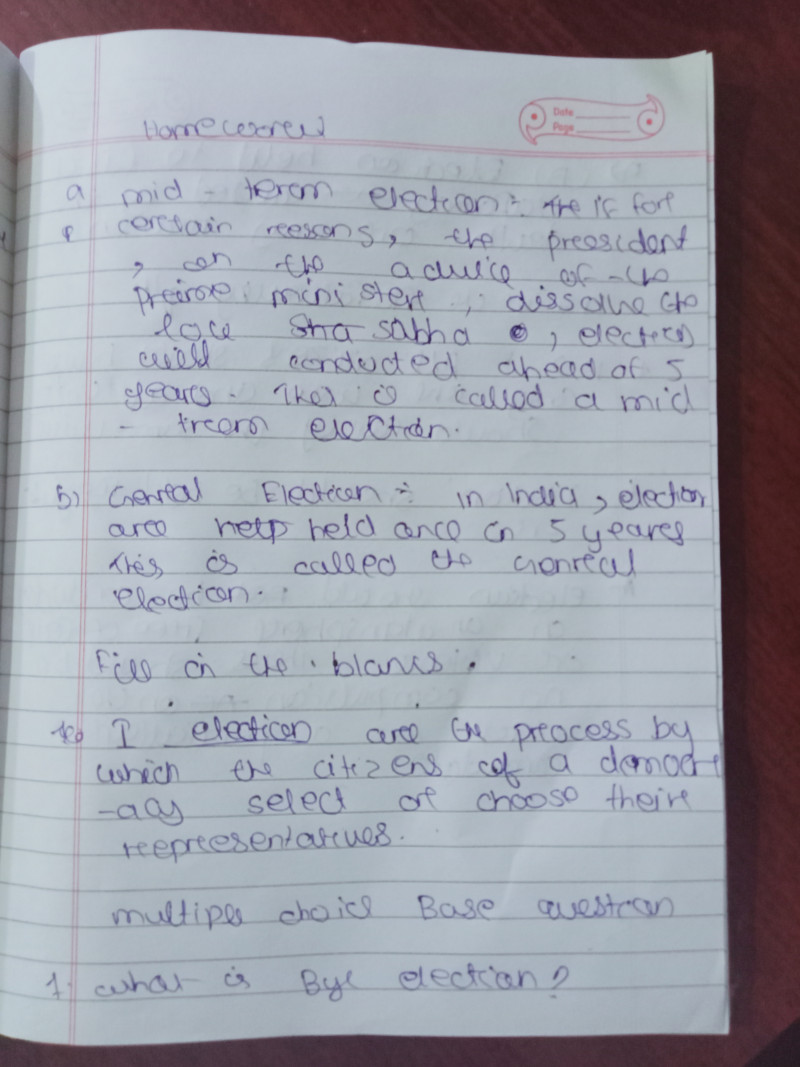 Homecworew
Date
Page
a mid - term election :- The if for
certain reesons, the preosident
, on the advice of the
preime minister, dissolve the
low Sha sabha , election
will conducted ahead of 5
years. This is called a mid
- trcem election.
b) Genreal Election :- in India, election
aree help held once in 5 yeares
This is called the Genreal
election.
Fill in the blanks.
I election aree the preocess by
which the citizens of a democr
-acy select or choose their
reepreesentatives.
multiple choice Base question
1. what is Bye election?